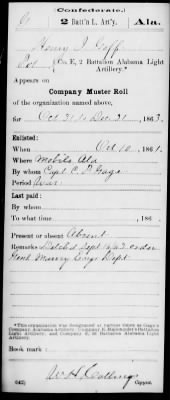 Confederate.
G 2 Batt'n L. Art'y. Ala.
Henry J. Goff
Pvt, Co. E, 2 Battalion Alabama Light
Artillery.*
Appears on
Company Muster Roll
of the organization named above,
for Oct 31 to Dec 31, 1863.
Enlisted:
When Oct 10, 1861.
Where Mobile Ala
By whom Capt C. P. Gage
Period War
Last paid:
By whom
To what time , 186 .
Present or absent Absent
Remarks: Detch'd Sept 16/63 order
Genl Maury Engr Dept
*This organization was designated at various times as Gage's
Company Alabama Artillery, Company E,
Light Artillery, and Company E, 20 Battalion Alabama
Light Artillery.
Book mark:
(642) Copyist.